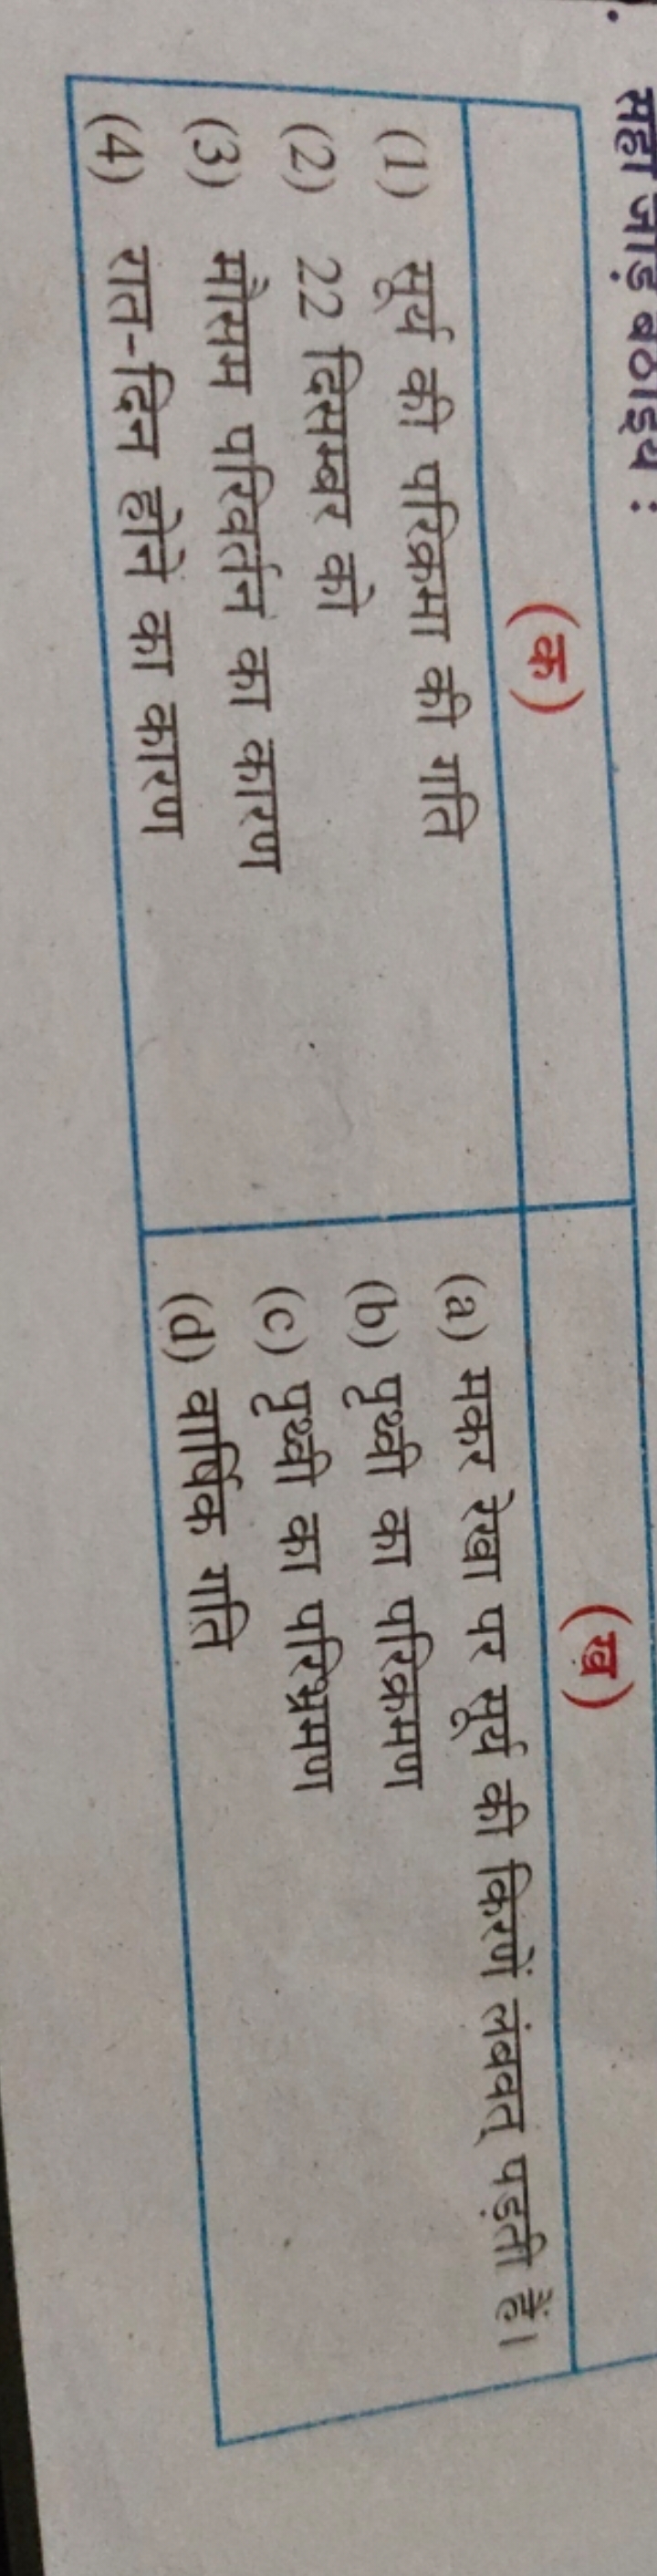 सही जोड़ बैठाइये :
(क)
(ख)
(1) सूर्य की परिक्रमा की गति
(a) मकर रेखा पर सूर्य की किरणें लंबवत् पड़ती हैं।
(2) 22 दिसम्बर को
(b) पृथ्वी का परिक्रमण
(3) मौसम परिवर्तन का कारण
(c) पृथ्वी का परिभ्रमण
(4) रात-दिन होने का कारण
(d) वार्षिक गति